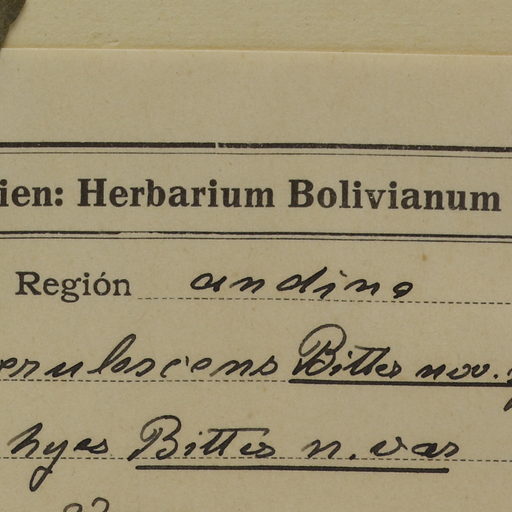 ien: Herbarium Bolivianum
Región andina
erulescens Bitter nov.
hyes Bitter n. var